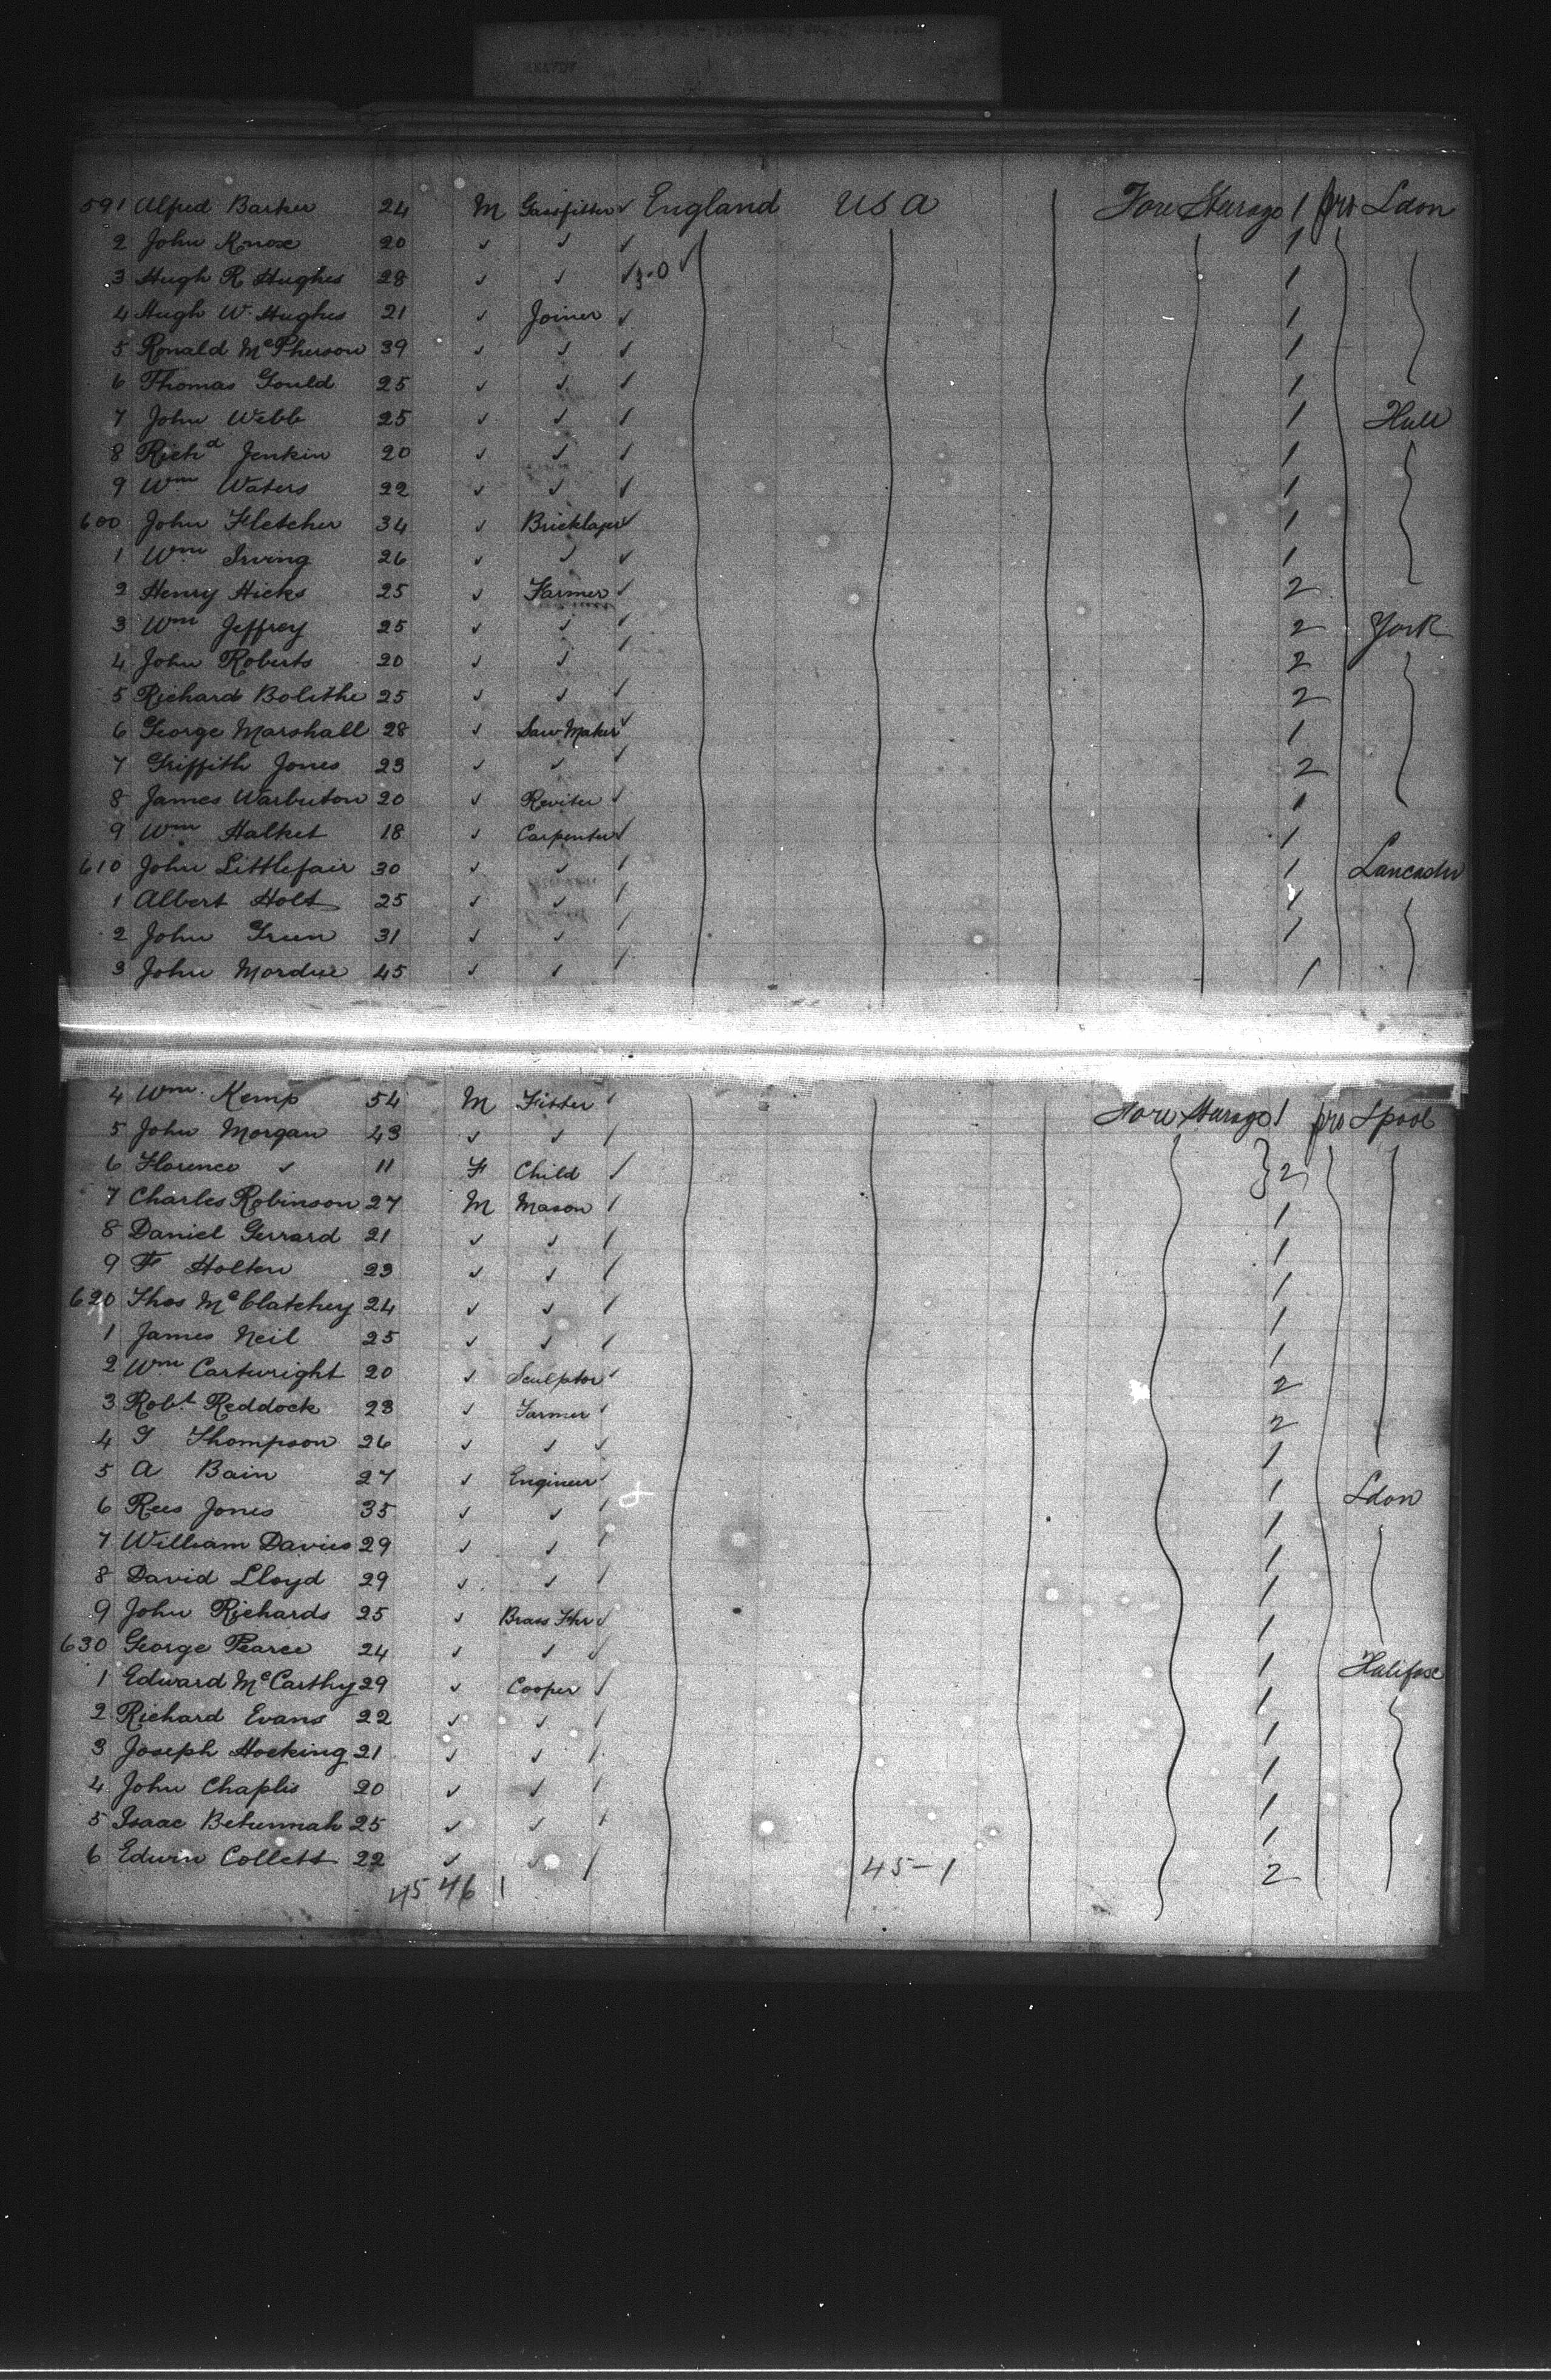 591 Alfred Barker 24 M Gassfitter ✓ England USA Fore Steerage 1 pro Ldon
2 John Knox 20 ✓ ✓ ✓ 1
3 Hugh R Hughes 28 ✓ ✓ ✓ 3-0 ✓ 1
4 Hugh W. Hughes 21 ✓ Joiner ✓ 1
5 Ronald McPherson 39 ✓ ✓ ✓ 1
6 Thomas Gould 25 ✓ ✓ ✓ 1
7 John Webb 25 ✓ ✓ ✓ 1 Hull
8 Richd Jenkin 20 ✓ ✓ ✓ 1
9 Wm Waters 22 ✓ ✓ ✓ 1
600 John Fletcher 34 ✓ Bricklayer ✓ 1
1 Wm Irving 26 ✓ ✓ ✓ 1
2 Henry Hicks 25 ✓ Farmer ✓ 2
3 Wm Jeffrey 25 ✓ ✓ ✓ 2 York
4 John Roberts 20 ✓ ✓ ✓ 2
5 Richard Bolithe 25 ✓ ✓ ✓ 2
6 George Marshall 28 ✓ Saw Maker ✓ 1
7 Griffith Jones 23 ✓ ✓ ✓ 2
8 James Warbuton 20 ✓ Reviter ✓ 1
9 Wm Halket 18 ✓ Carpenter ✓ 1
610 John Littlefair 30 ✓ ✓ ✓ 1 Lancaster
1 Albert Holt 25 ✓ ✓ ✓ 1
2 John Green 31 ✓ ✓ ✓ 1
3 John Mordue 45 ✓ ✓ ✓ 1
4 Wm. Kemp 54 M Fitter ✓ Fore Steerage 1 pro Lpool
5 John Morgan 43 ✓ ✓ ✓
6 Florence ✓ 11 F Child ✓ } 2
7 Charles Robinson 27 M Mason ✓ 1
8 Daniel Gerrard 21 ✓ ✓ ✓ 1
9 F Holten 23 ✓ ✓ ✓ 1
620 Thos McClatchey 24 ✓ ✓ ✓ 1
1 James Neil 25 ✓ ✓ ✓ 1
2 Wm Cartwright 20 ✓ Sculptor ✓ 2
3 Robt Reddock 23 ✓ Farmer ✓ 2
4 T Thompson 26 ✓ ✓ ✓ 1
5 A Bain 27 ✓ Engineer ✓ 1 Ldon
6 Rees Jones 35 ✓ ✓ ✓ 1
7 William Davies 29 ✓ ✓ ✓ 1
8 David Lloyd 29 ✓ ✓ ✓ 1
9 John Richards 25 ✓ Brass Fthr ✓ 1
630 George Pearce 24 ✓ ✓ ✓ 1 Halifax
1 Edward McCarthy 29 ✓ Cooper ✓ 1
2 Richard Evans 22 ✓ ✓ ✓ 1
3 Joseph Hocking 21 ✓ ✓ ✓ 1
4 John Chaplis 20 ✓ ✓ ✓ 1
5 Isaac Betunnah 25 ✓ ✓ ✓ 1
6 Edwin Collett 22 ✓ ✓ ✓ 2
45 46 1 45-1